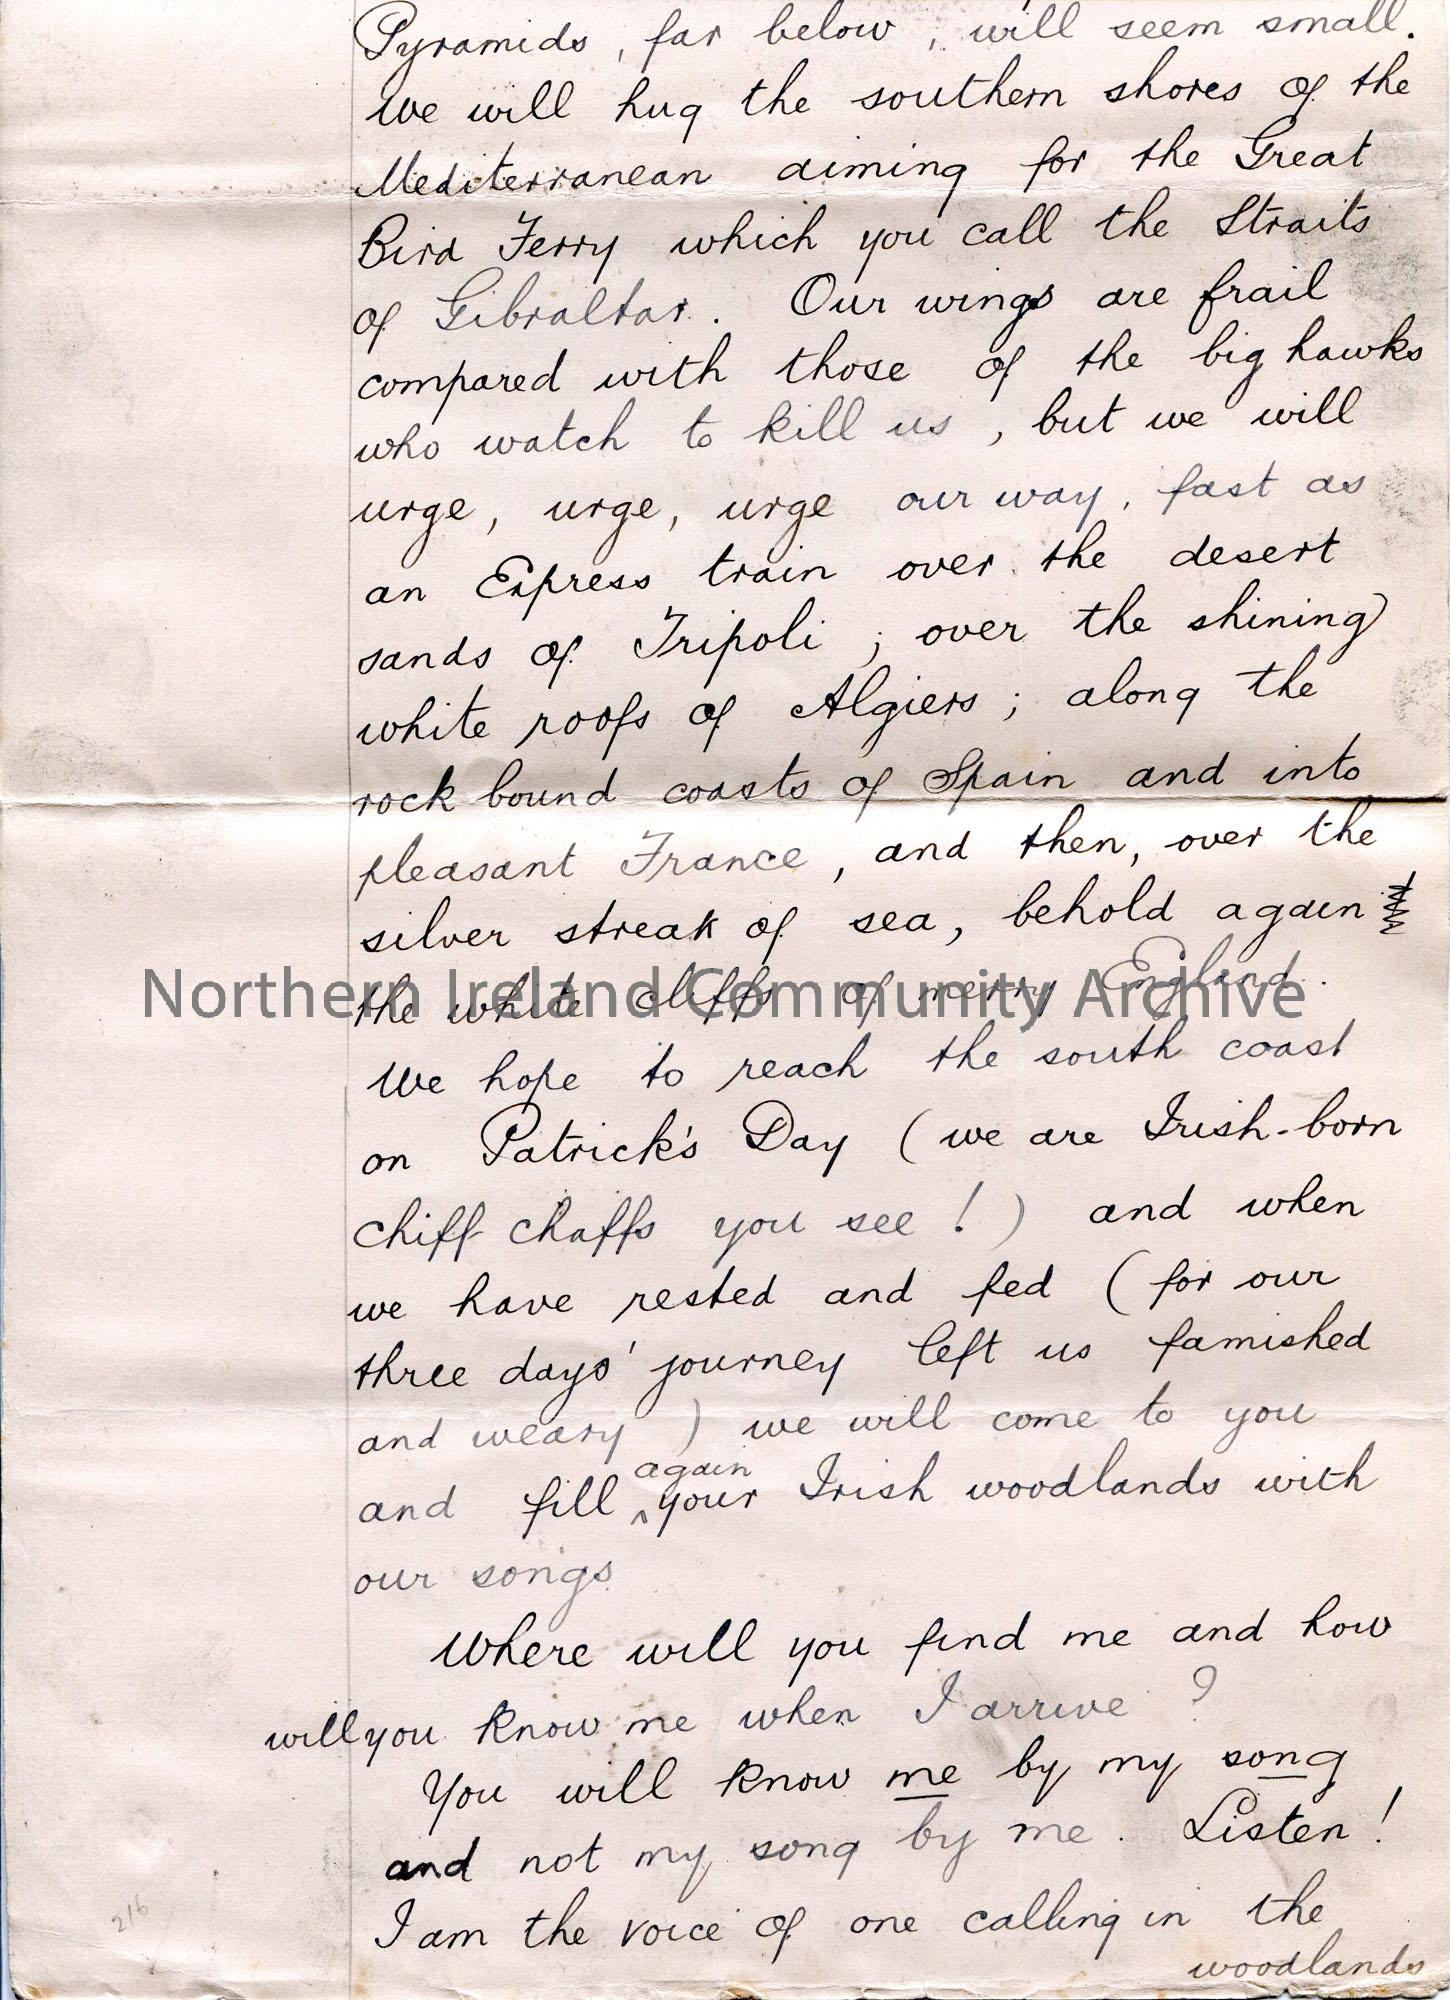 Pyramids, far below, will seem small.
We will hug the southern shores of the
Mediterranean aiming for the Great
Bird Ferry which you call the Straits
of Gibraltar. Our wings are frail
compared with those of the big hawks
who watch to kill us, but we will
urge, urge, urge our way, fast as
an Express train over the desert
sands of Tripoli; over the shining
white roofs of Algiers; along the
rock bound coasts of Spain and into
pleasant France, and then, over the
silver streak of sea, behold again
the white cliffs of merry England.
Northern Ireland Community Archive
We hope to reach the south coast
on Patrick's Day (we are Irish-born
chiff chaffs you see!) and when
we have rested and fed (for our
three days' journey left us famished
and weary) we will come to you
again
and fill ^ your Irish woodlands with
our songs
Where will you find me and how
will you know me when I arrive?
You will know me by my song
and not my song by me. Listen!
I am the voice of one calling in the
woodlands
216